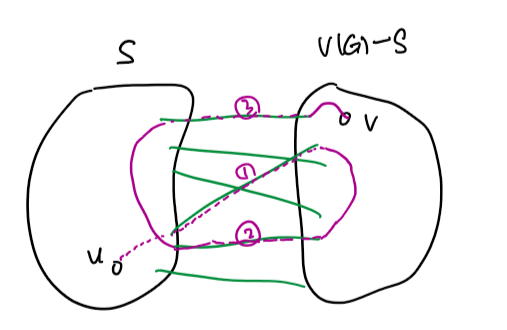 S
V(G)-S
③
v
①
②
u